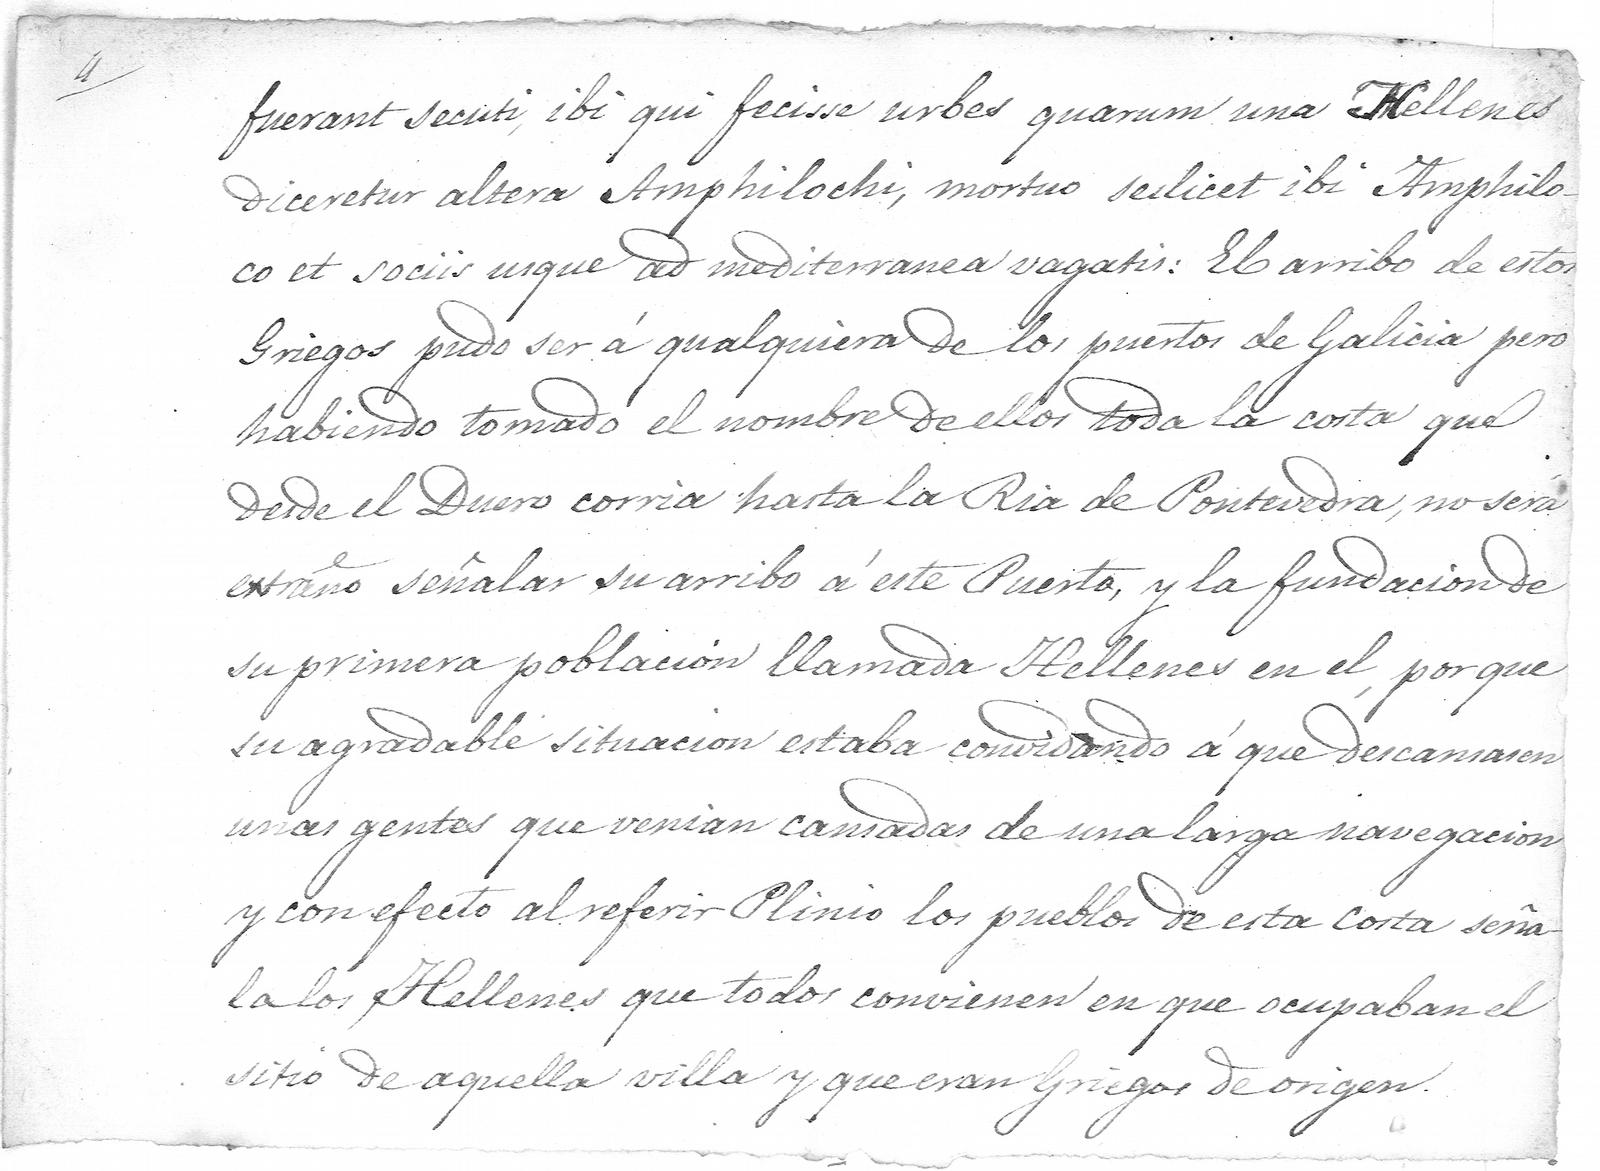 4
fuerant secuti, ibi qui fecisse urbes quarum una Hellenes
diceretur altera Amphilochi, mortuo scilicet ibi Amphilo-
co et sociis usque ad mediterranea vagatis: El arribo de estos
Griegos pudo ser á qualquiera de los puertos de Galicia pero
habiendo tomado el nombre de ellos toda la costa que
desde el Duero corria hasta la Ria de Pontevedra, no será
extraño señalar su arribo á este Puerto, y la fundacion de
su primera poblacion llamada Hellenes en el, por que
su agradable situacion estaba convidando á que descansasen
unas gentes que venian cansadas de una larga navegacion
y con efecto al referir Plinio los pueblos de esta costa seña-
la los Hellenes que todos convienen en que ocupaban el
sitio de aquella villa y que eran Griegos de origen.